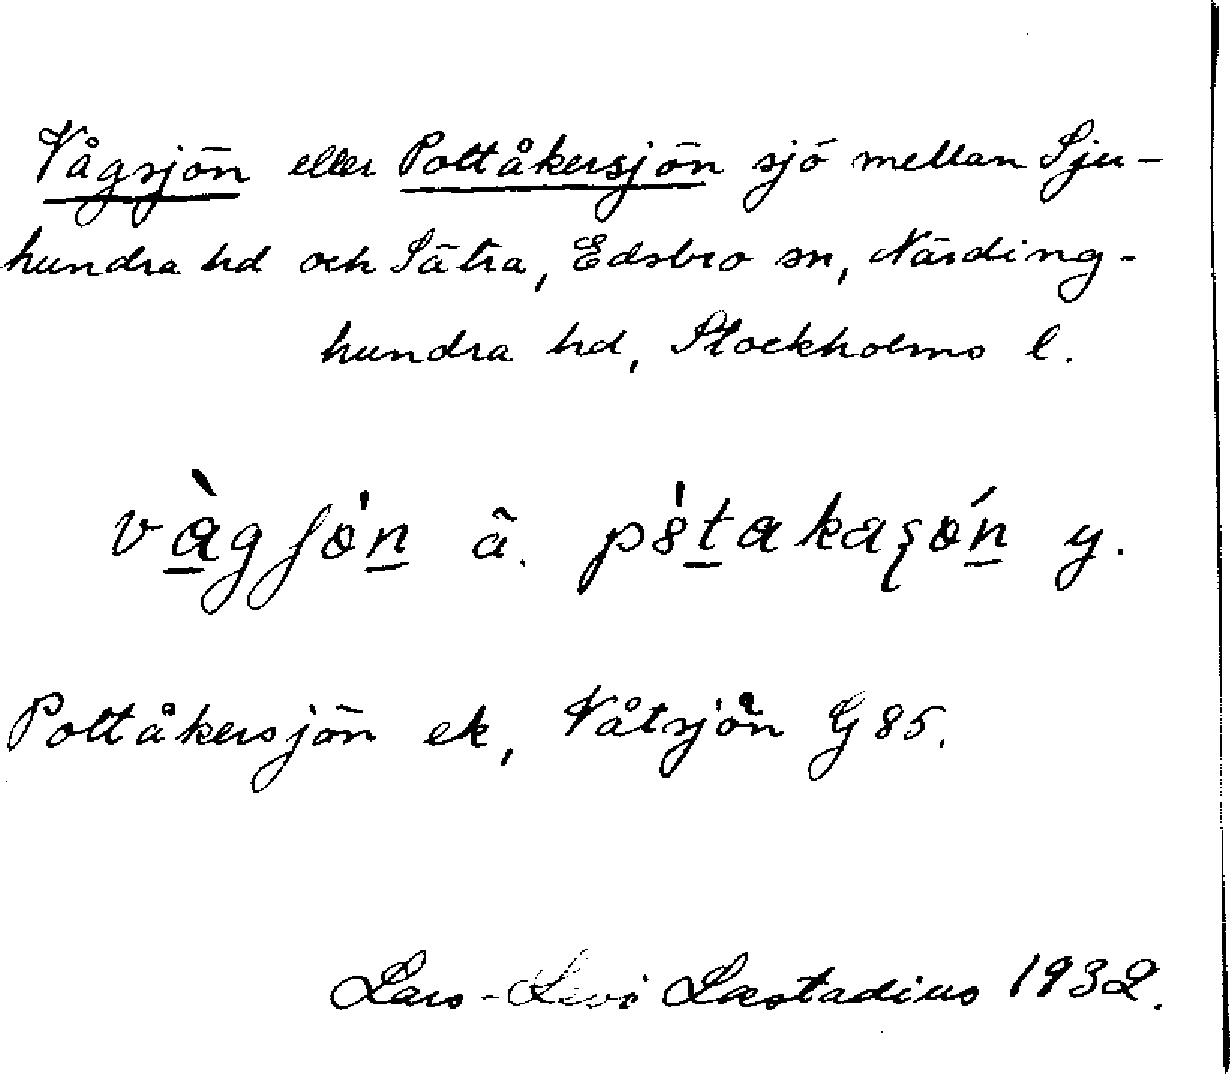 Vågsjön eller Pottåkersjön sjö mellan Sju-
hundra hd och Sätra, Edsbro sn, Närding-
hundra hd, Stockholms l.
vàgʃø̀n ä. pȯ́takaʂǿn y.
Pottåkersjön ek, Våtsjön G 85.
Lars-Levi Læstadius 1932.